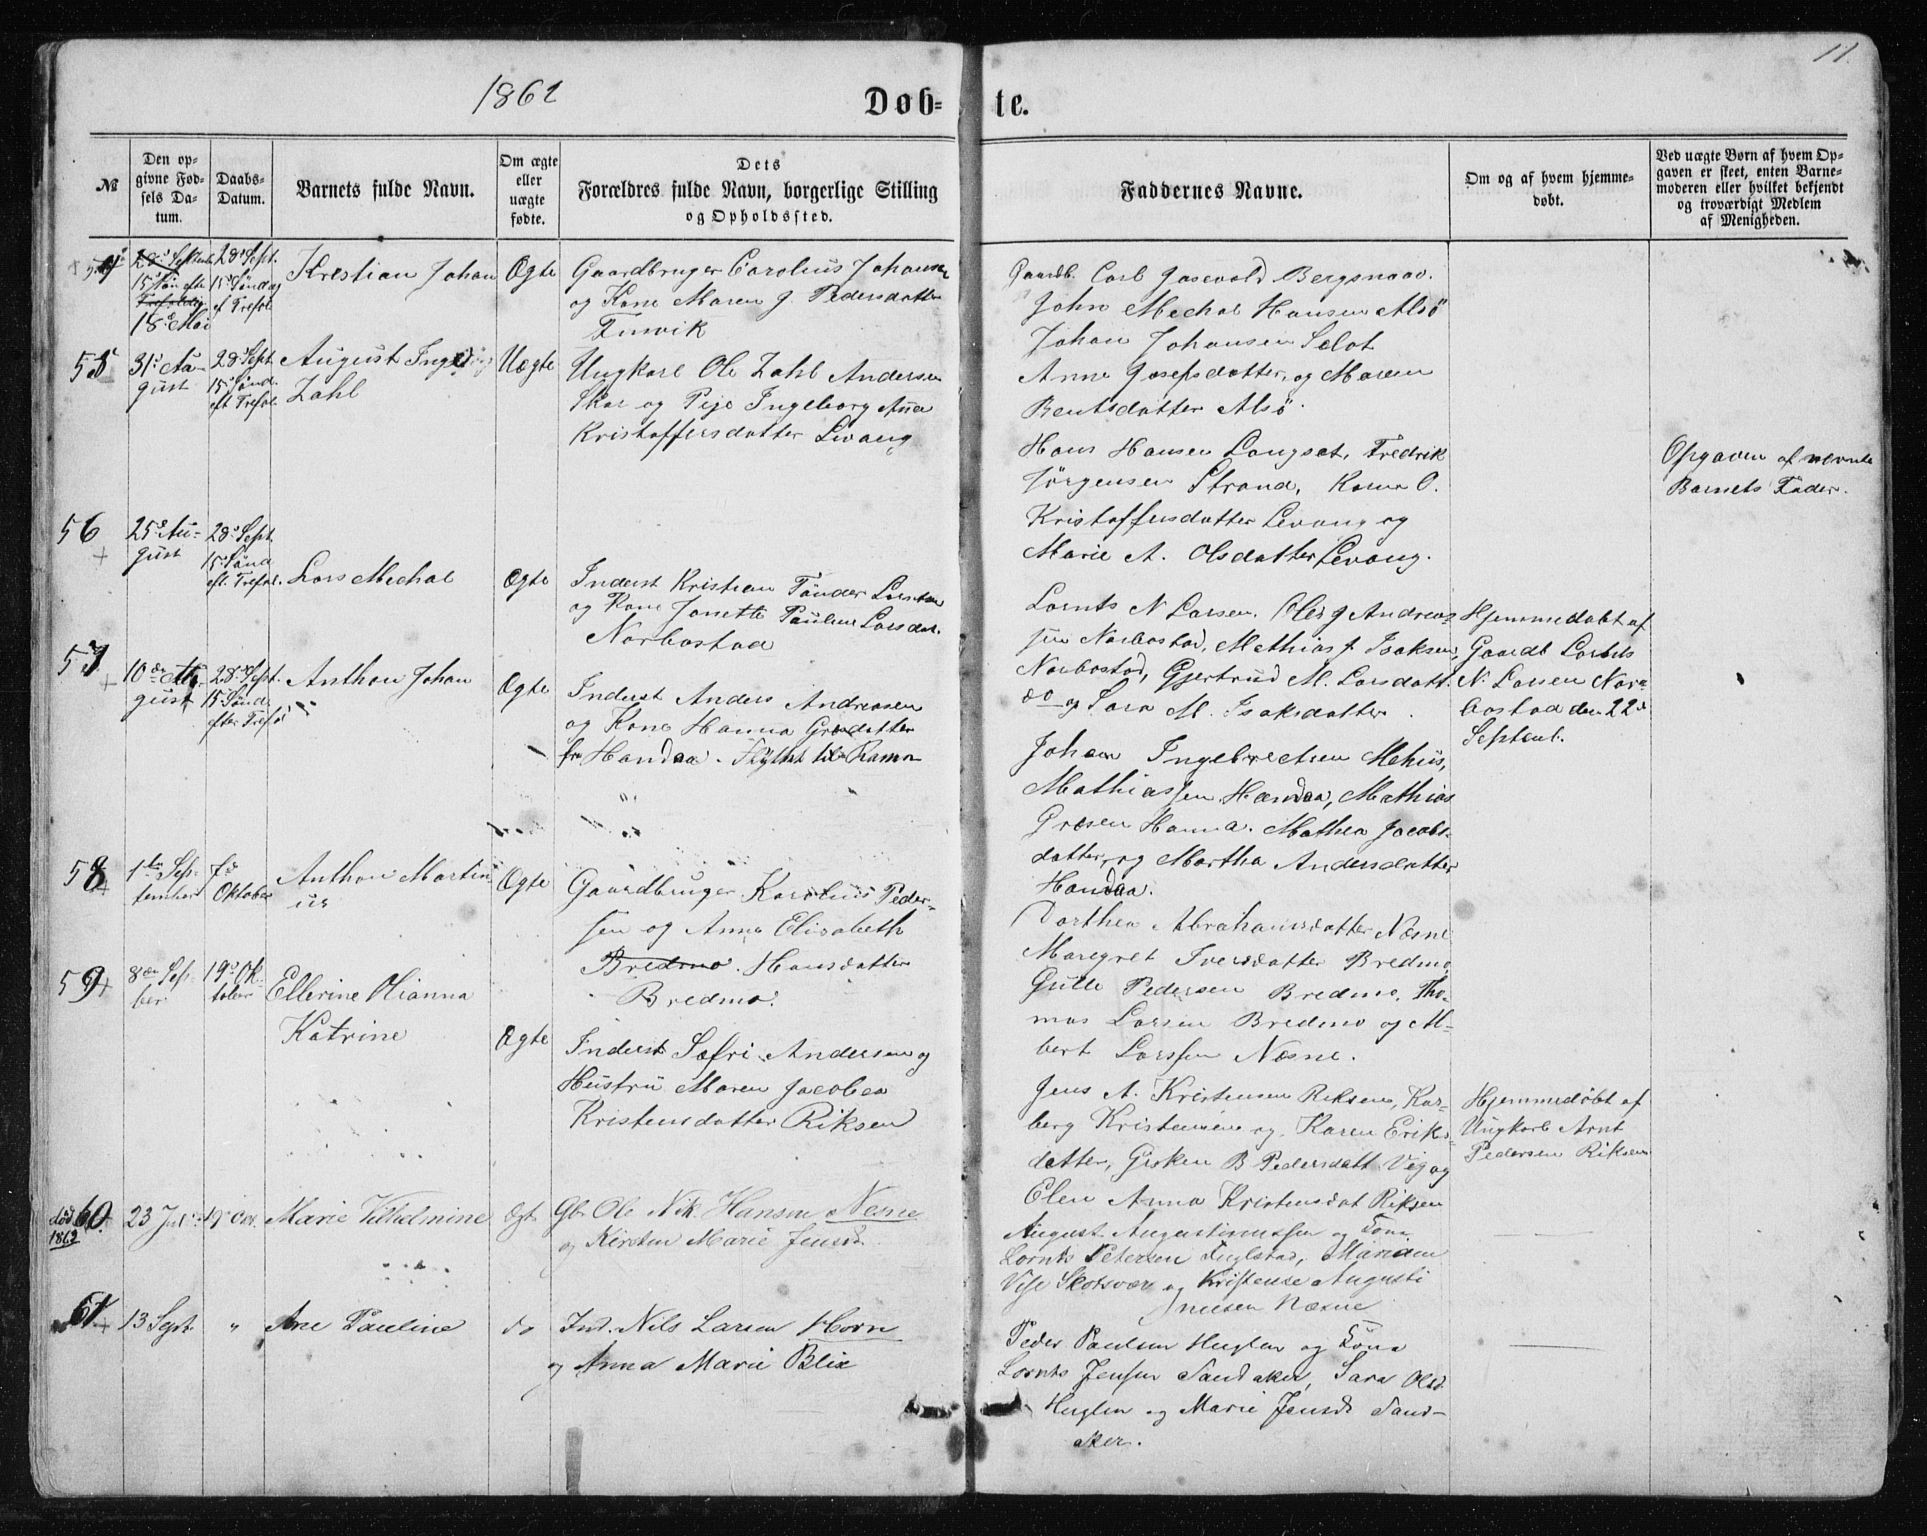 11.
1862
Døb-
te.
№
Den op-
givne Fød-
sels Da-
tum.
Daabs-
Datum.
Barnets fulde Navn.
Om ægte
eller
uægte
fødte.
Dets
Forældres fulde Navn, borgerlige Stilling
og Opholdssted.
Faddernes Navne.
Om og af hvem hjemme-
døbt.
Ved uægte Børn af hvem Op-
gaven er skeet, enten Barne-
moderen eller hvilket bekjendt
og troværdigt Medlem
af Menigheden.
18 Mai
28 Sept.
15 Søndag
ef Trefol
Krestian Johan
Ægte
Gaardbruger Carolius Johansen
og Kone Maren J. Pedersdatter
Finvik
Gaardb. Carl Bergsnaav.
John Mechal Hansen Alsø
Johan Johansen Selot
Anne Josefsdatter, og Maren
Bentsdatter Alsø.
55
31 Au-
gust
28 Sept
15 Sønd.
eft Trefol.
August
Zahl
Uægte
Ungkarl Ole Zahl Andersen
Skar og Pige Ingeborg Ana
Kristoffersdatter Levang
Hans Hansen Langset, Fredrik
Jørgensen Strand, Karen O.
Kristoffersdatter Levang og
Marie A. Olsdatter Levang.
Opgaven af nevnte
Barnets Fader.
56
25 Au-
gust
28 Sept
15 Sønd
eft. Trefol.
Lars Mechal
Ægte
Inderst Kristian Tønder Larsen
og Kone Janette Pauline Larsdat.
Norbostad
Lornts N Larsen, Andreas-
sen Norbostad, Mathias J. Isaksen,
Norbostad, Gjertrud M. Larsdatt.
do og Sara M. Isaksdatter.
Hjemmedøbt af
Gaardb Lornts
N. Larsen Nor-
bostad den 22
Septemb.
57
10 Au-
gust
28 Sept
15 Sønd
efter Trefol
Anthon Johan
Ægte
Inderst Anders Andreasen
og Kone Hanna
fra Handaa. Flyttet til Ramø
Johan Ingebrectsen
Mathiassen Handaa, Mathias
Hanna. Mathea Jacobs-
datter, og Martha Andersdatter
Handaa.
58
1 Sep-
tember
7
Oktober
Anthon Martin
ius
Ægte
Gaardbruger Karolius Peder-
sen og Anna Elisabeth
Bredmo. Hansdatter
Bredmo.
Dorthea Abrahamsdatter Næsne
Maregret Iversdatter Bredmo
Pedersen Bredmo, Tho-
mas Larsen Bredmo og Al-
bert Larssen Næsne.
59
8 Sep
ber
19 Ok-
tober
Ellerine Hianna
Katrine
Ægte
Inderst Sefri Andersen og
Hustru Maren Jacobea
Kristensdatter Riksen
Jens A. Kristensen Riksen, Kar-
berg Kristensen og Karen Eriks-
datter, Gisken B Pedersdatt. Vig og
Elen Anna Kristensdat Riksen
Hjemmedøbt af
Ungkarl Arnt
Pedersen Riksen
død
1862
60
23
19 Oct.
Marie Vilhelmine
Ægt.
Gb. Ole Nik. Hansen Nesne
og Kirsten Marie Jensd.
August Augustinussen og Kona
Lornts Petersen Fuglstad, Mariam
Vise Skotsvær og Kristense Augusti
nusen Næsne
61
13 Sept.
"
Ane Pauline
do
Ind. Nils Larsen Horn
og Anna Marie Blix
Peder Paulsen Huglen og Kona
Lornts Jensen Sandaker, Sara Olsd
Huglen og Marie Jensd Sand-
aker.